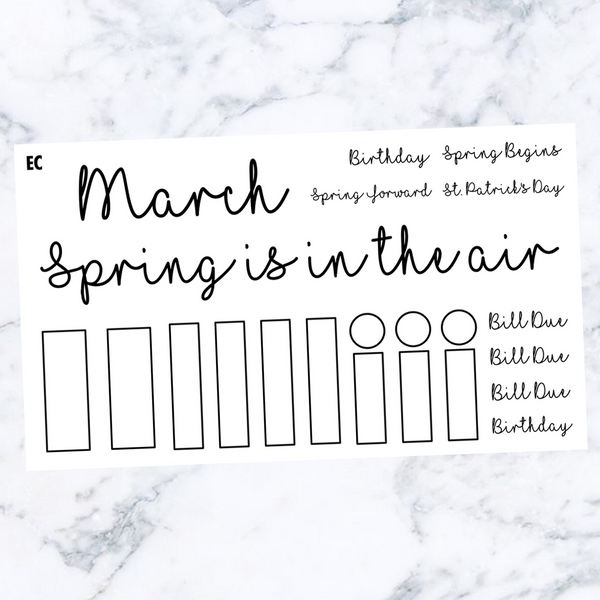 EC
March
Birthday Spring Begins
Spring forward St. Patrick's Day
Spring is in the air
Bill Due
Bill Due
Bill Due
Birthday